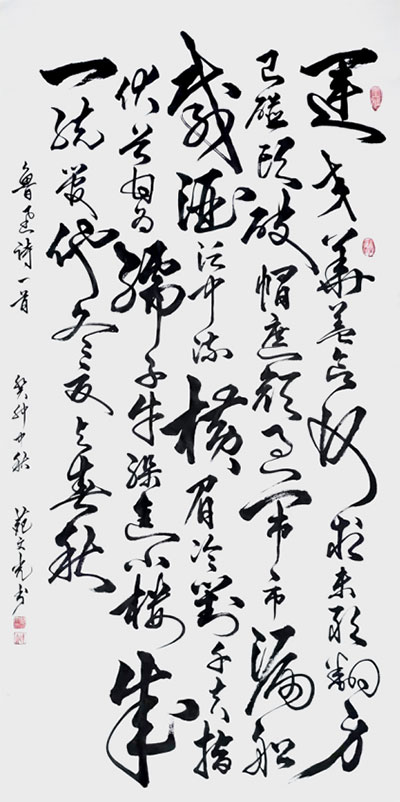 運交華蓋欲何求未敢翻身
已碰頭破帽遮顏過鬧市漏船
載酒泛中流橫眉冷對千夫指
伏首甘為孺子牛躲進小樓成
一統管他冬夏與春秋
魯迅詩一首 中秋 書